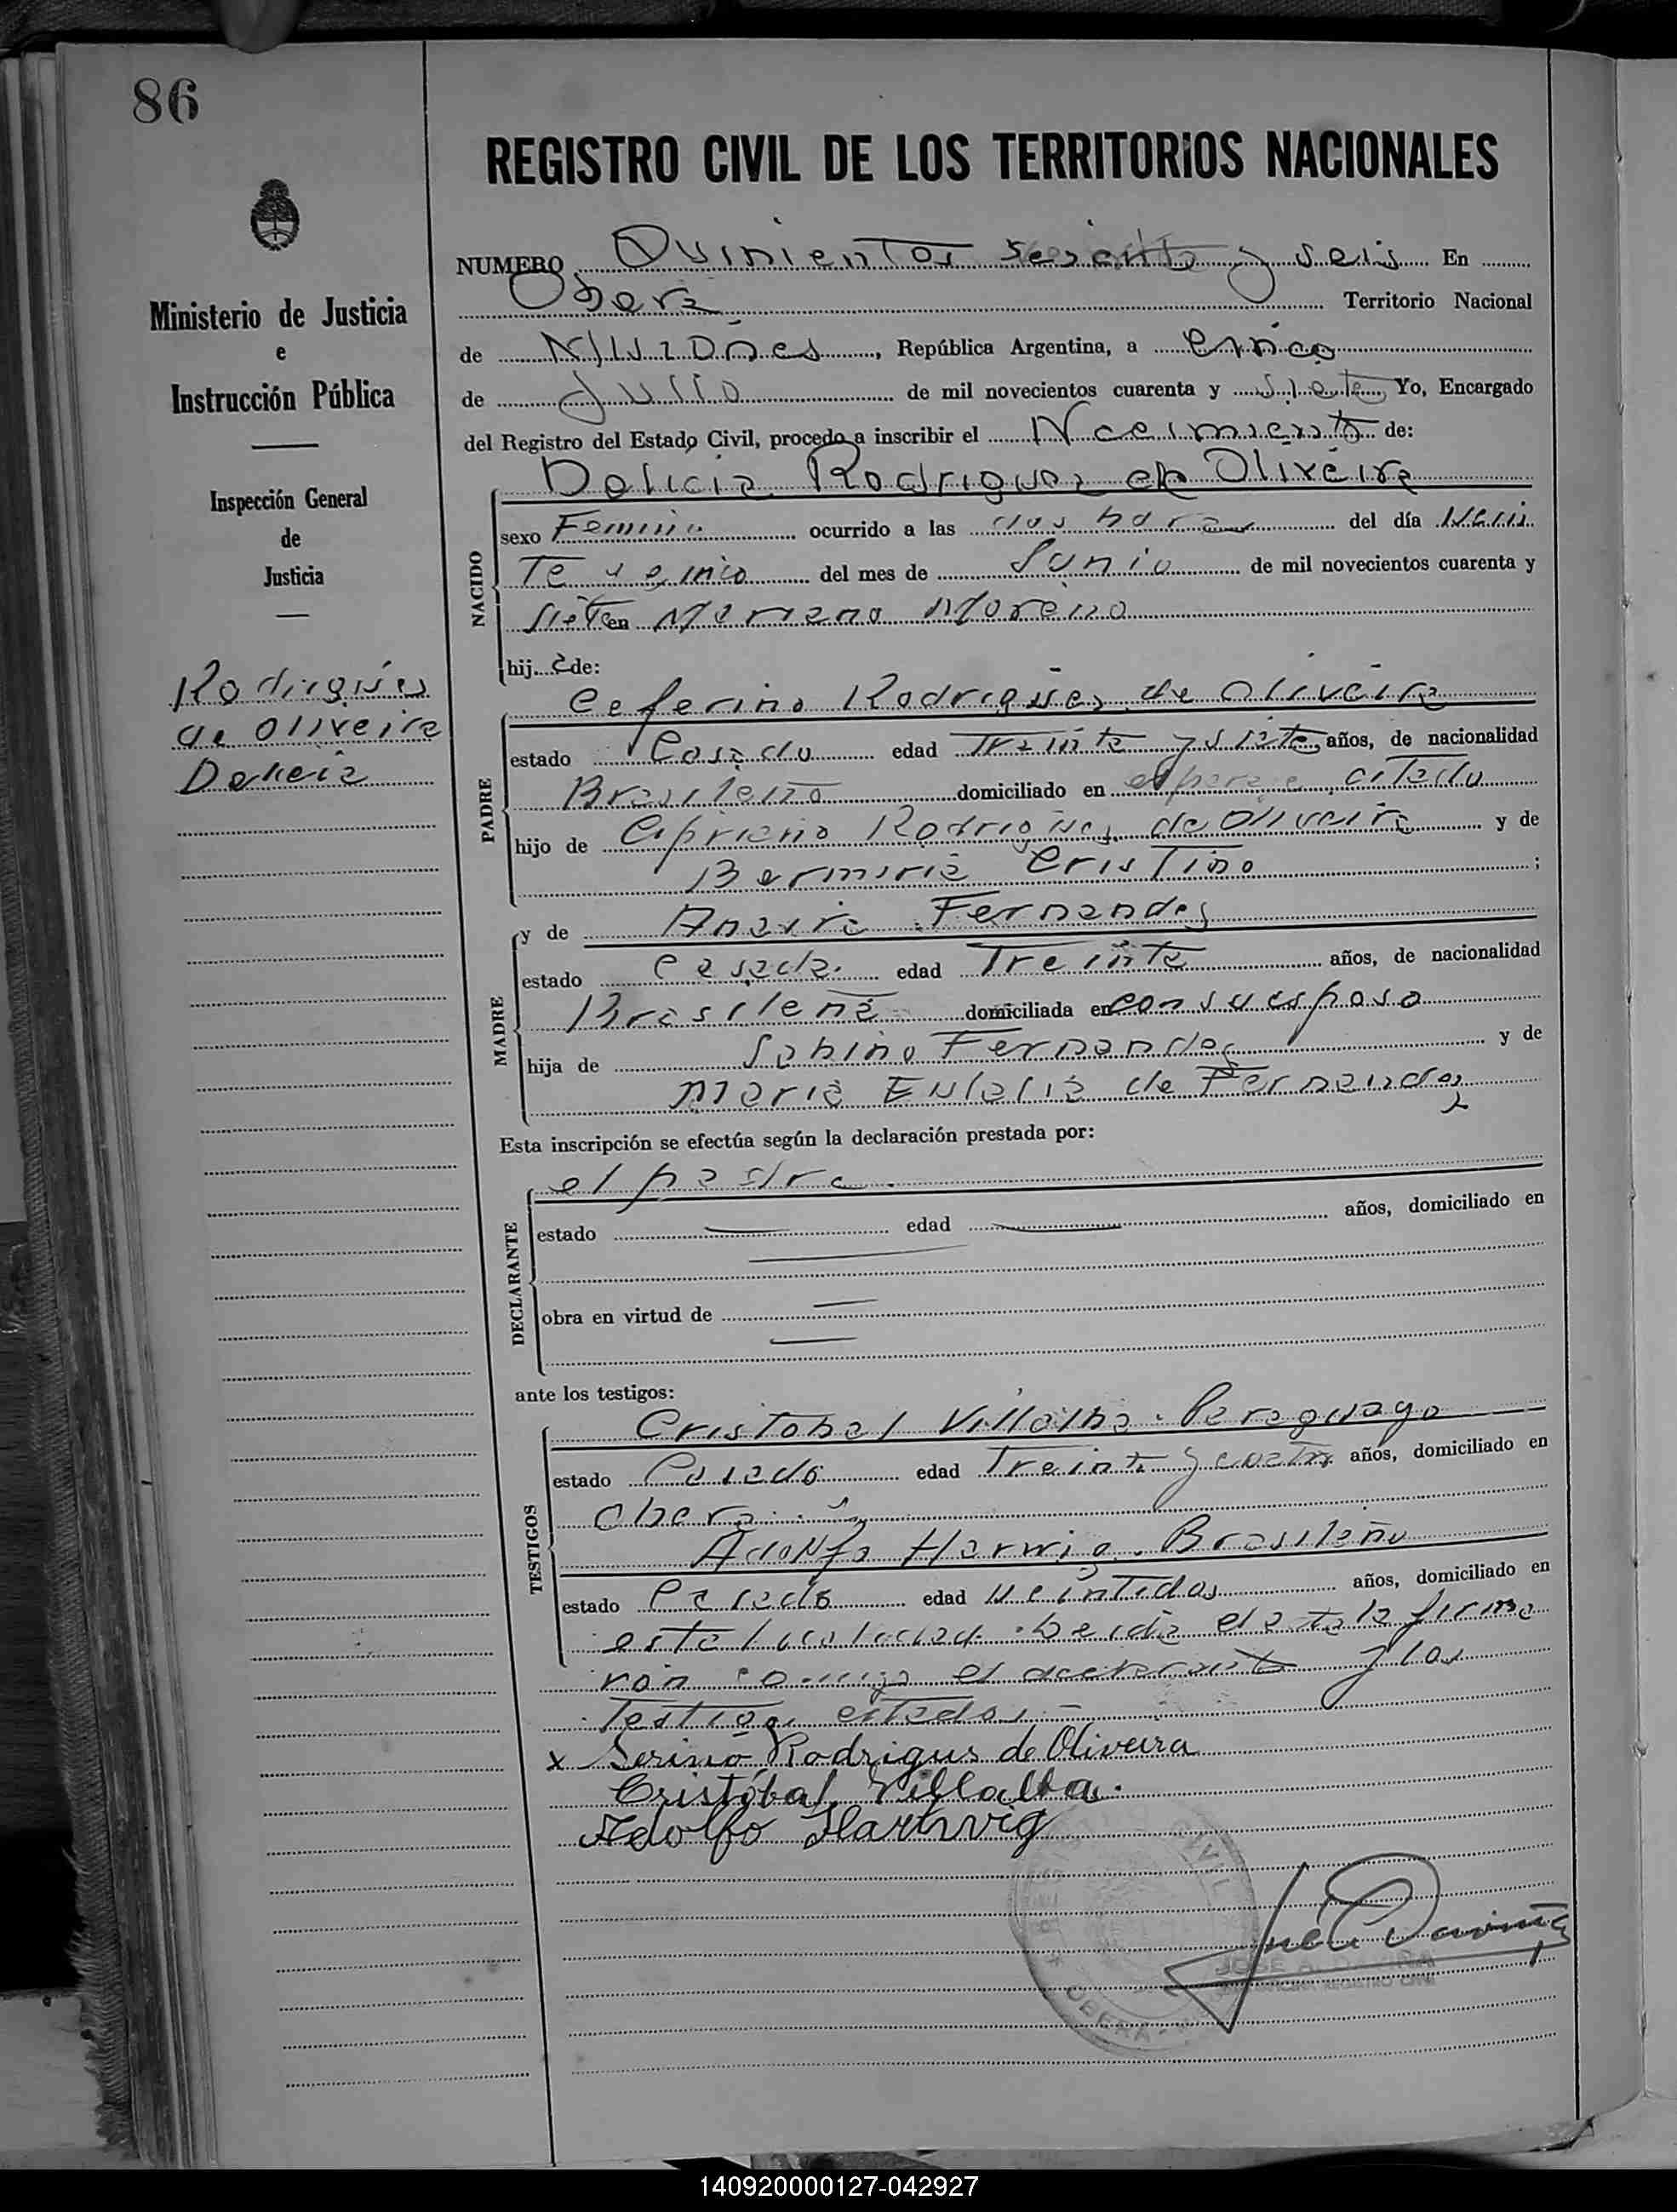 86
REGISTRO CIVIL DE LOS TERRITORIOS NACIONALES
Ministerio de Justicia
e
Instrucción Pública
Inspección General
de
Justicia
Rodrigúes
de Oliveira
Delicia
NUMERO Quinientos sesenta y seis En
Oberá Territorio Nacional
de Misiones, República Argentina, a cinco
de Julio de mil novecientos cuarenta y siete Yo, Encargado
del Registro del Estado Civil, procedo a inscribir el Nacimiento de:
Delicia Rodriguez de Oliveira
NACIDO
sexo Femenino ocurrido a las dos horas del día Vein
te y cinco del mes de Junio de mil novecientos cuarenta y
siete en Mariano Moreno
hija de:
Ceferino Rodrigues de Oliveira
PADRE
estado Casado edad Treinta y siete años, de nacionalidad
Brasileño domiciliado en el paraje citado
hijo de Cipriano Rodrigues de Oliveira y de
Cristino ;
MADRE
y de Fernandes
estado casada edad Treinta años, de nacionalidad
Brasileña domiciliada en con su esposo
hija de Sabino Fernandes y de
Maria Eulalia de Fernandez
Esta inscripción se efectúa según la declaración prestada por:
el padre.
DECLARANTE
estado edad años, domiciliado en
obra en virtud de
ante los testigos:
TESTIGOS
Cristobal Villalba. Paraguayo
estado Casado edad Treinta y cuatro años, domiciliado en
Oberá.
Adolfo Harwig. Brasileño
estado Casado edad Veintidos años, domiciliado en
esta localidad. Leida el acta la firma
ron conmigo el declarante y los
Testigos citados.
x Serino Rodrigues de Oliveira
Cristóbal Villalba.
Adolfo Hartwig
CIVIL
OBERA
JOSE A.
REGISTRO CIVIL
140920000127-042927